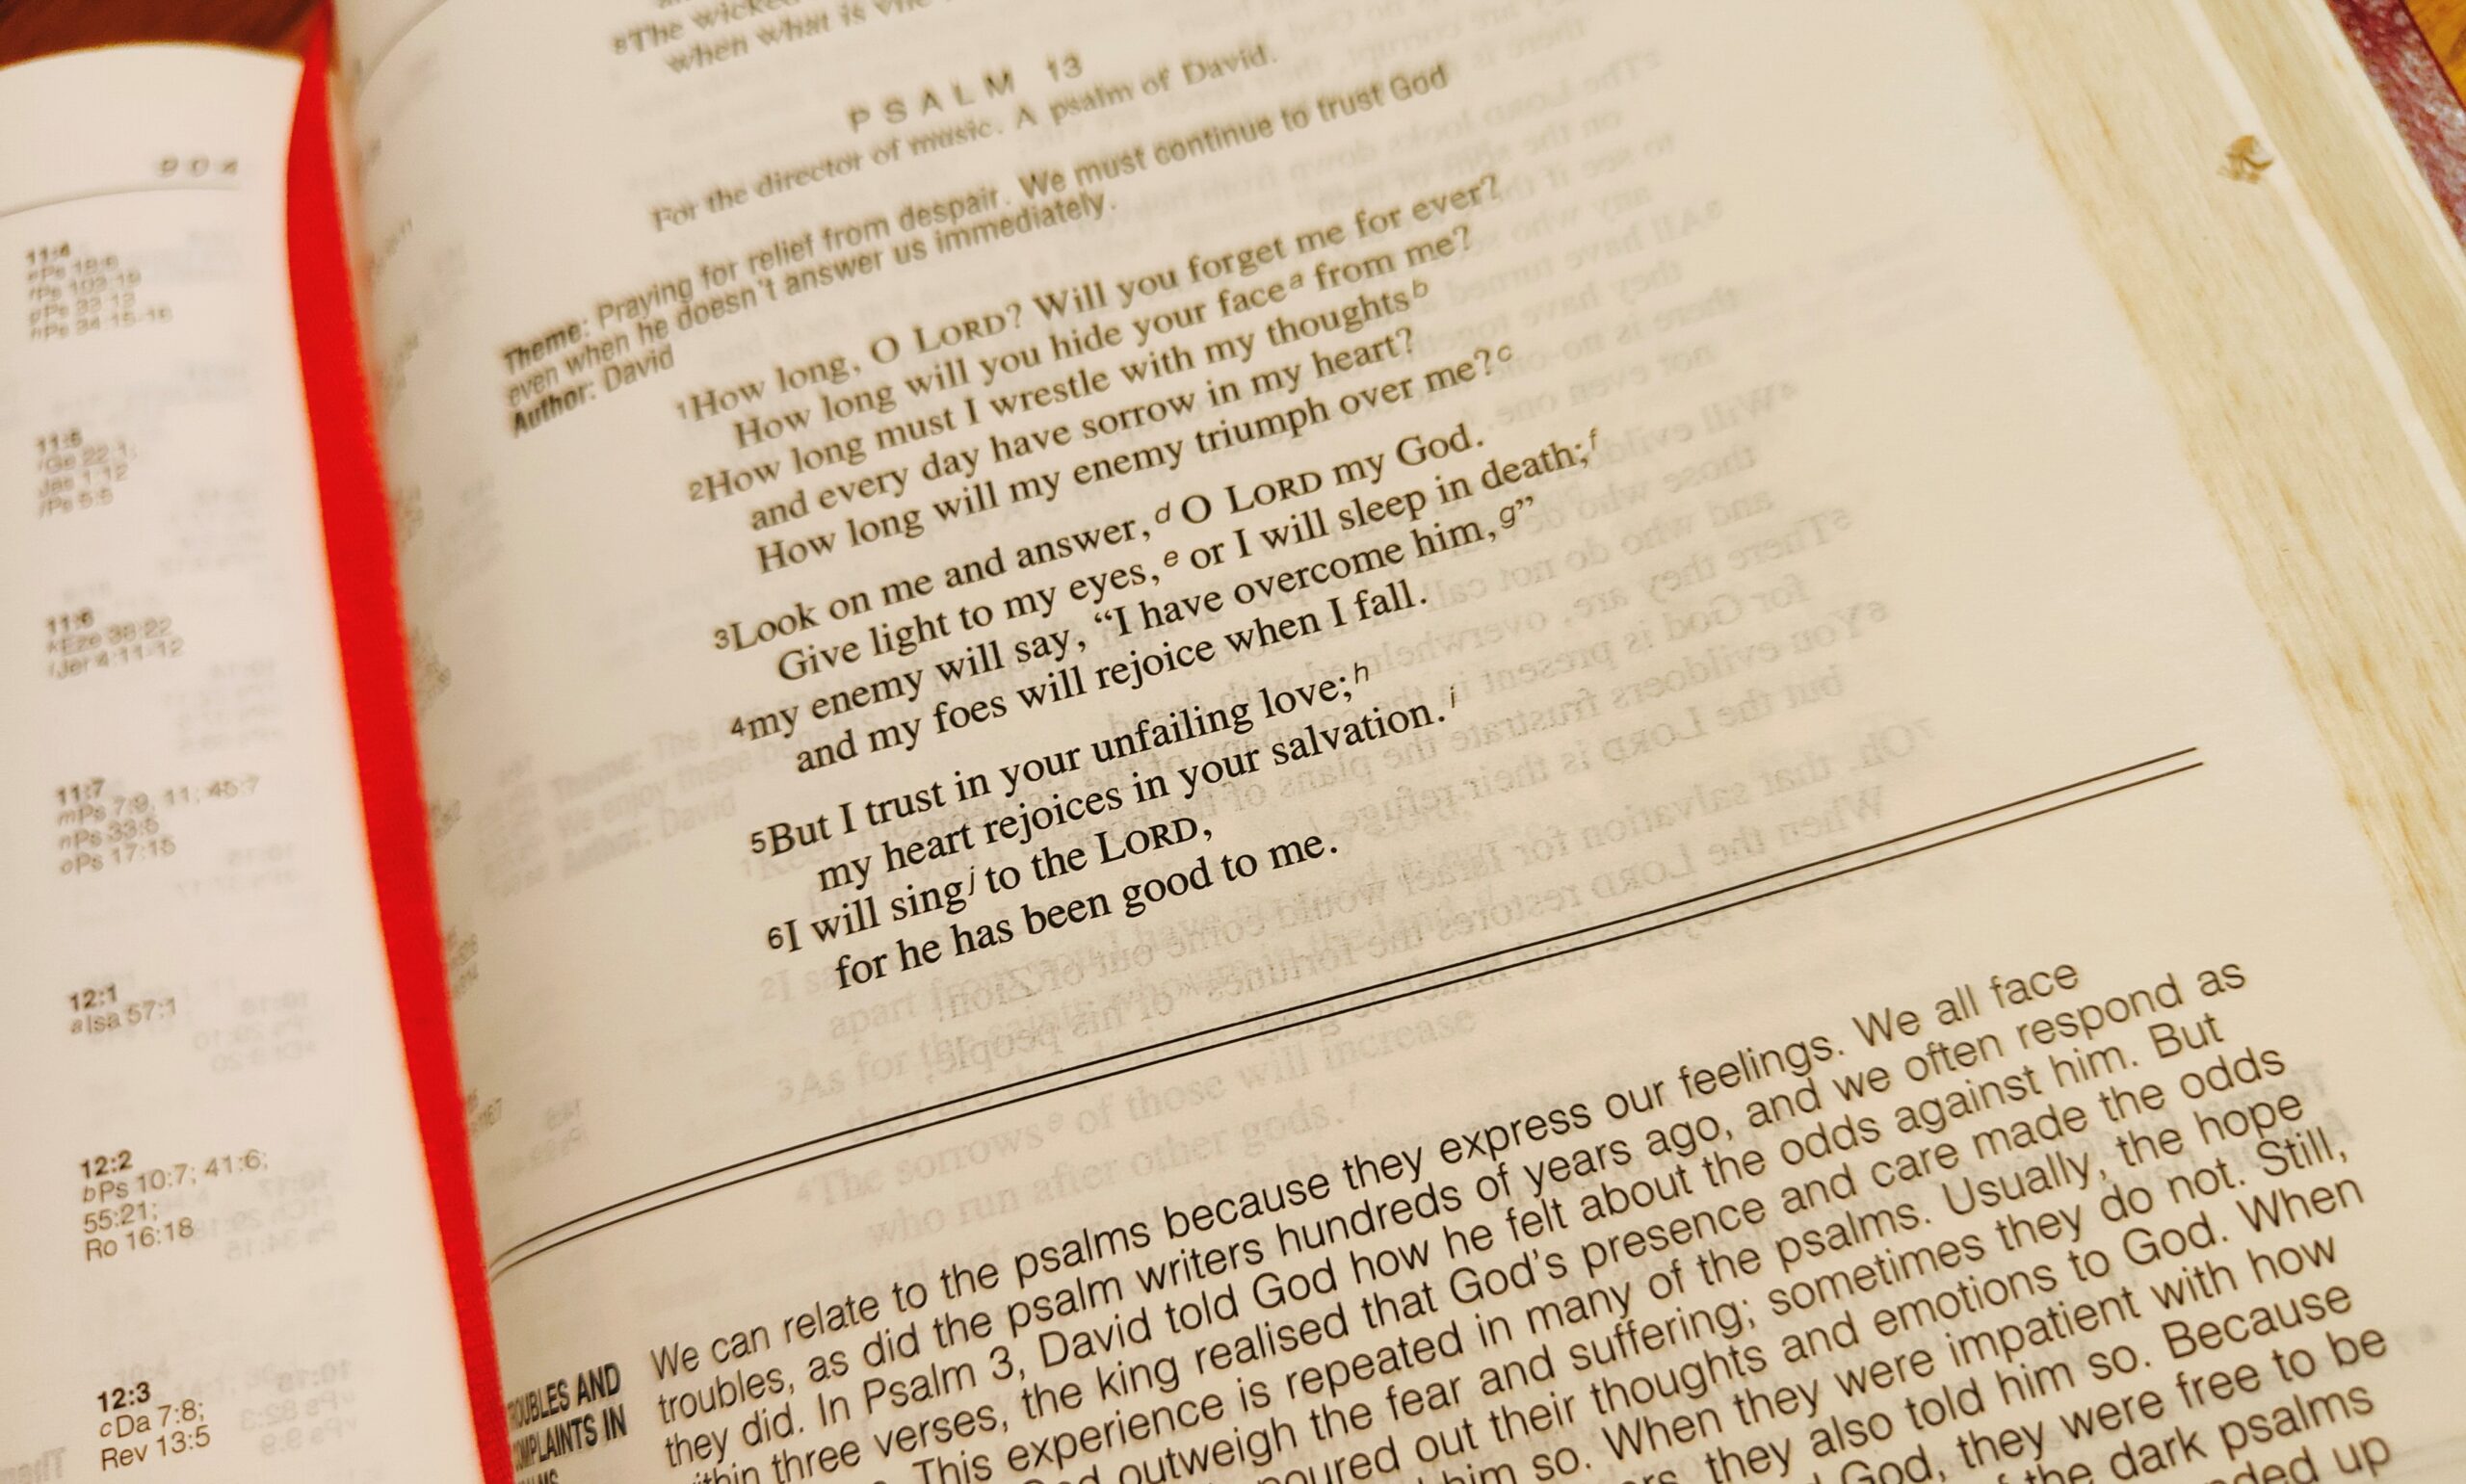 904
11:4
Ps 103:19
Ps 33:13
Ps 34:15-16
11:5
Ge 22:1;
Jas 1:12
Ps 5:5
11:6
kEze 38:22
lJer 4:11-12
11:7
mPs 7:9, 11; 45:7
nPs 33:5
oPs 17:15
12:1
aIsa 57:1
12:2
bPs 10:7; 41:6;
55:21;
Ro 16:18
12:3
cDa 7:8;
Rev 13:5
8The wicked
when what is
PSALM 13
For the director of music. A psalm of David.
Theme: Praying for relief from despair. We must continue to trust God
even when he doesn't answer us immediately.
Author: David
1How long, O LORD? Will you forget me for ever?
How long will you hide your face a from me?
2How long must I wrestle with my thoughts b
and every day have sorrow in my heart?
How long will my enemy triumph over me? c
3Look on me and answer, d O LORD my God.
Give light to my eyes, e or I will sleep in death; f
4my enemy will say, “I have overcome him, g”
and my foes will rejoice when I fall.
5But I trust in your unfailing love; h
my heart rejoices in your salvation. i
6I will sing j to the LORD,
for he has been good to me.
OUBLES AND
MPLAINTS IN
We can relate to the psalms because they express our feelings. We all face
troubles, as did the psalm writers hundreds of years ago, and we often respond as
they did. In Psalm 3, David told God how he felt about the odds against him. But
within three verses, the king realised that God's presence and care made the odds
This experience is repeated in many of the psalms. Usually, the hope
outweigh the fear and suffering; sometimes they do not. Still,
poured out their thoughts and emotions to God. When
him so. When they were impatient with how
they also told him so. Because
God, they were free to be
the dark psalms
up